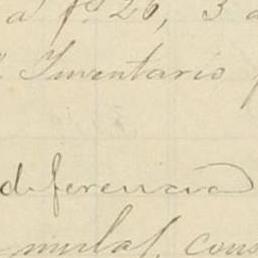 a fs. 26, 3
Inventario
diferencia
mulat, cons